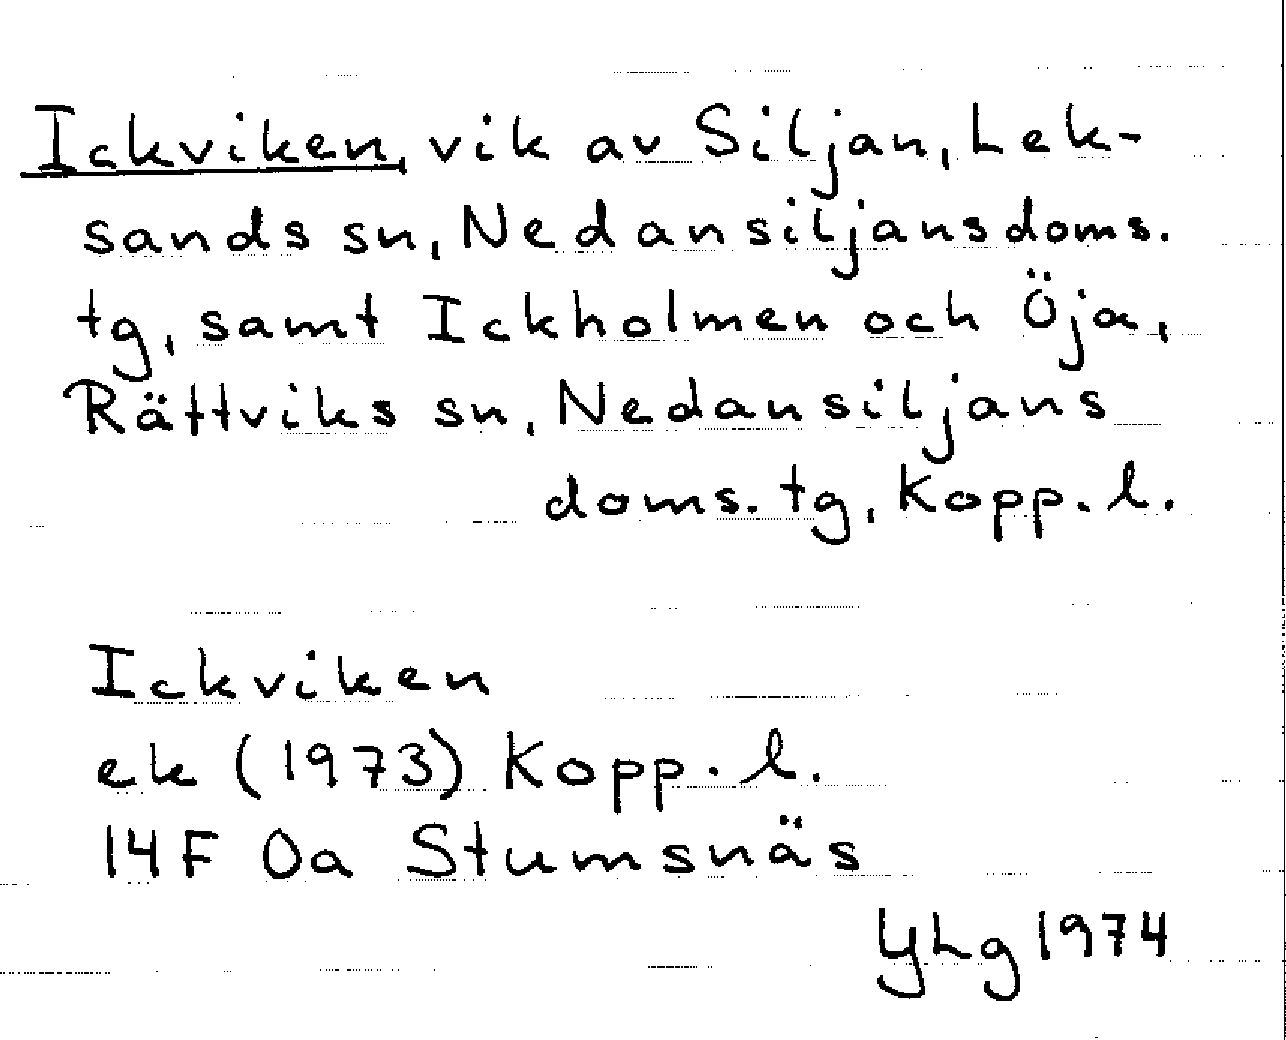 Ickviken, vik av Siljan, Lek-
sands sn, Nedansiljans doms.
tg, samt Ickholmen och Öja,
Rättviks sn, Nedansiljans
doms. tg, Kopp. l.
Ickviken
ek (1973) Kopp. l.
14F 0a Stumsnäs
YLg 1974